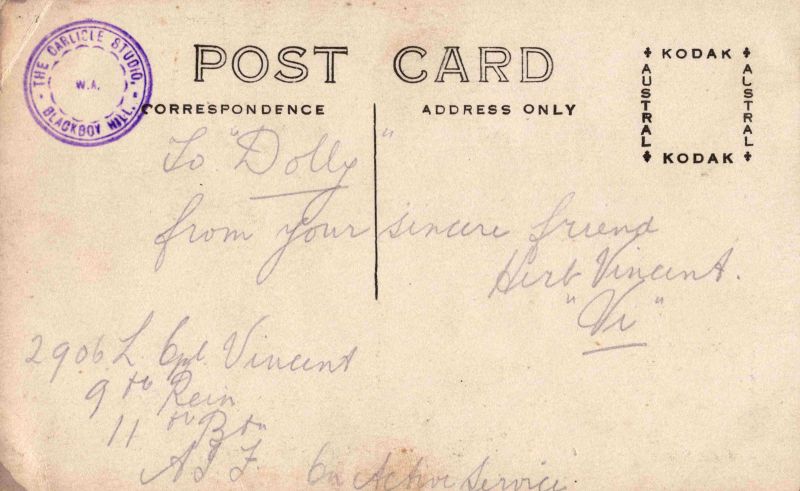 THE CARLICLE STUDIO,
W.A.
BLACKBOY HILL.
POST CARD
CORRESPONDENCE
ADDRESS ONLY
KODAK
AUSTRAL
AUSTRAL
KODAK
To "Dolly"
from your sincere friend
Herb Vincent.
"Vi"
2906 L. Cpl. Vincent
9th Rein
11th Btn
A I F. On Active Service.